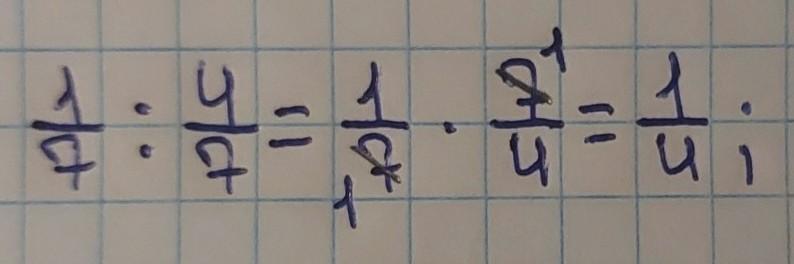 1/7 : 4/7 = 1/7 1 · 7/4 1 = 1/4 ;